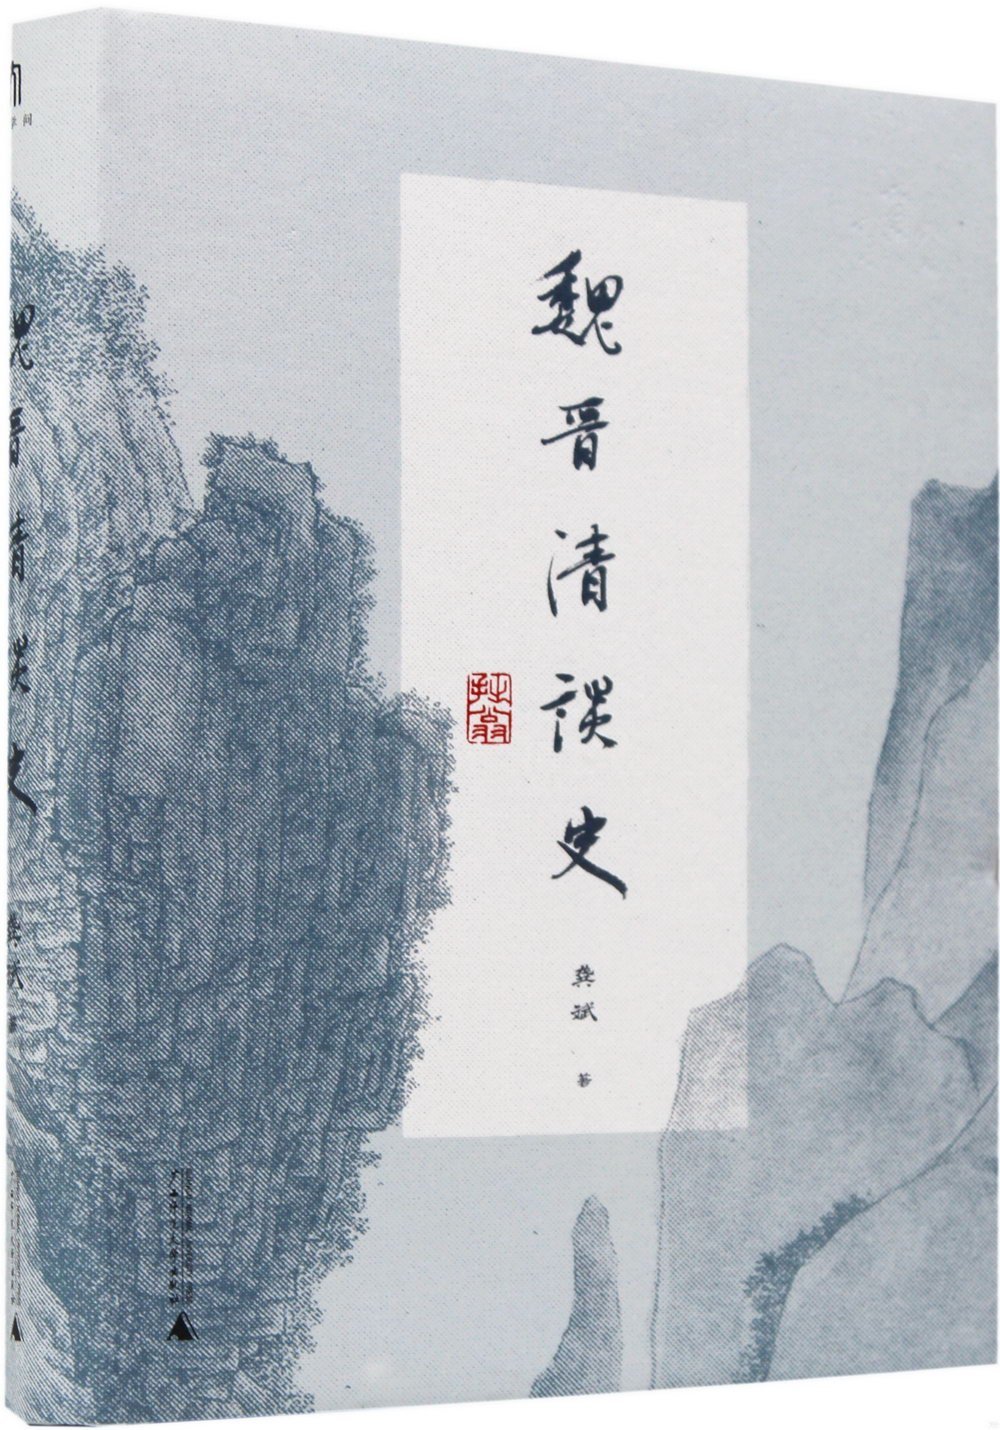 魏晋清談史
龚斌 著
魏晋清談史
龚斌